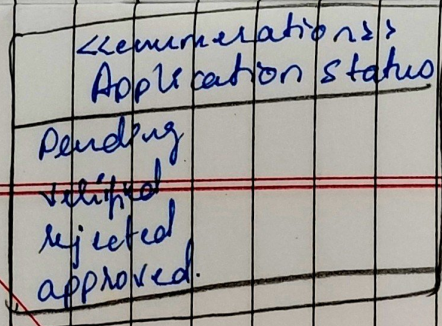 <<enumeration>>
Application Status
Pending
verified
rejected
approved.